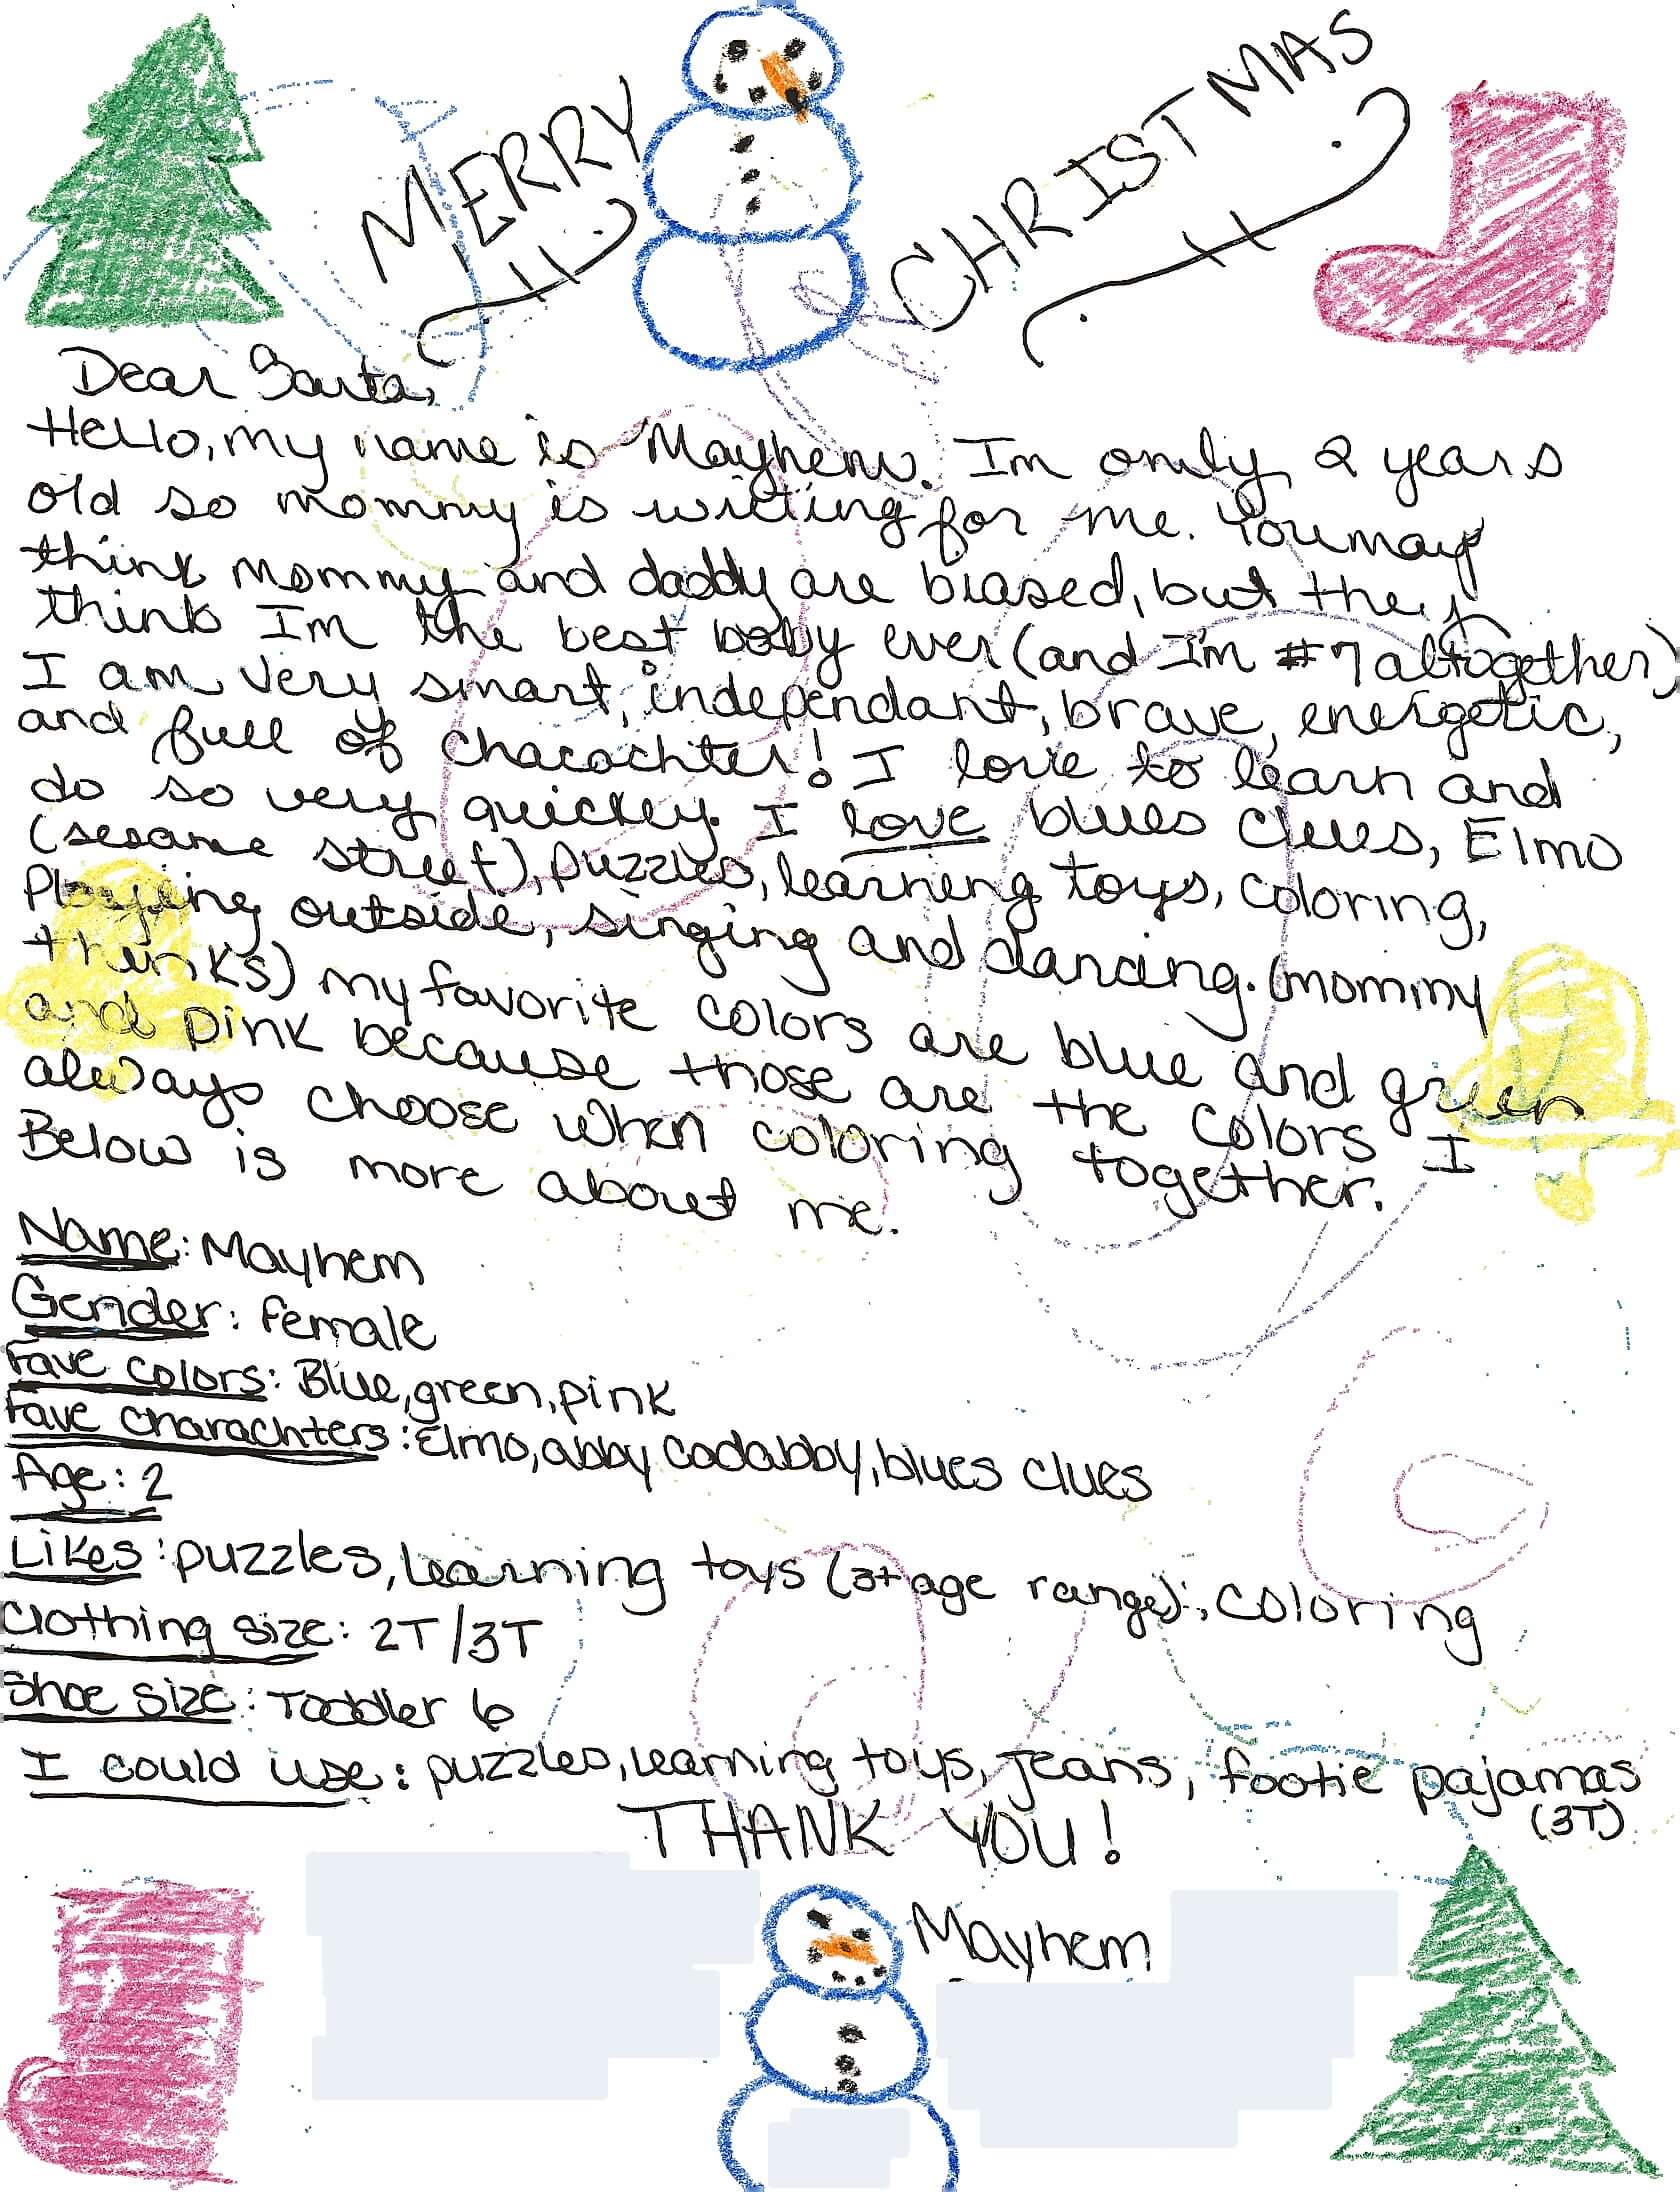 MERRY CHRISTMAS
Dear Santa,
Hello, my name is Mayhem. Im only 2 years
old so mommy is writing for me. You may
think mommy and daddy are biased, but they
think Im the best baby ever (and I'm #7 altogether)
I am very smart, independant, brave, energetic,
and full of charachter! I love to learn and
do so very quickly. I love blues clues, Elmo
(sesame street), puzzles, learning toys, coloring,
Playing outside, singing and dancing. (mommy
thinks) my favorite colors are blue and green
and pink because those are the colors I
always choose when coloring together.
Below is more about me.
Name: Mayhem
Gender: Female
Fave colors: Blue, green, pink
Fave charachters: Elmo, abby cadabby, blues clues
Age: 2
Likes: puzzles, learning toys (3+ age range), coloring
Clothing size: 2T/3T
Shoe size: Toddler 6
I could use: puzzles, learning toys, jeans, footie pajamas
(3T)
THANK YOU!
Mayhem